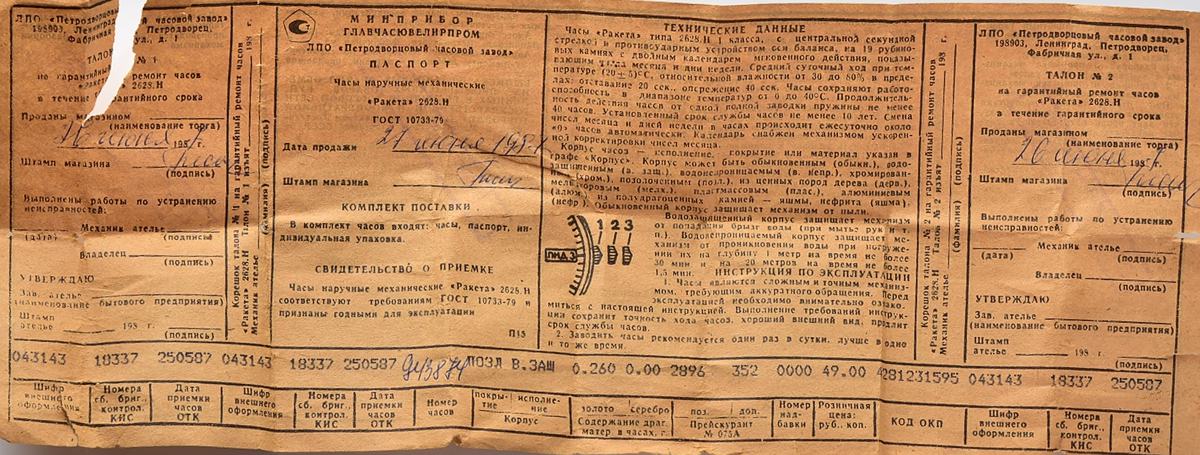 ЛПО «Петродворцовый часовой завод»
198903, Ленинград, Петродворец,
Фабричная ул., д. 1
ТАЛОН № 1
на гарантийный ремонт часов
«Ракета» 2628.Н
в течение гарантийного срока
Проданы магазином
(наименование торга)
июня 198 г.
Штамп магазина
(подпись)
Выполнены работы по устранению
неисправностей:
Механик ателье
(дата) (подпись)
Владелец
(подпись)
УТВЕРЖДАЮ
Зав. ателье
(наименование бытового предприятия)
Штамп
ателье 198 г.
(подпись)
Корешок талона № 1 на гарантийный ремонт часов
«Ракета» 2628.Н Талон № 1 изъят 198 г.
Механик ателье (фамилия) (подпись)
МИНПРИБОР
ГЛАВЧАСЮВЕЛИРПРОМ
ЛПО «Петродворцовый часовой завод»
ПАСПОРТ
Часы наручные механические
«Ракета» 2628.Н
ГОСТ 10733-79
Дата продажи июня 198
Штамп магазина
КОМПЛЕКТ ПОСТАВКИ
В комплект часов входят: часы, паспорт, ин-
дивидуальная упаковка.
СВИДЕТЕЛЬСТВО О ПРИЕМКЕ
Часы наручные механические «Ракета» 2628.Н
соответствуют требованиям ГОСТ 10733-79 и
признаны годными для эксплуатации
П15
ТЕХНИЧЕСКИЕ ДАННЫЕ
Часы «Ракета» типа 2628.Н, 1 класса, с центральной секундной
стрелкой и противоударным устройством оси баланса, на 19 рубино-
вых камнях с двойным календарем мгновенного действия, показы-
вающим числа месяца и дни недели. Средний суточный ход при тем-
пературе (20±5)°С, относительной влажности от 30 до 80% в преде-
лах: отставание 20 сек., опережение 40 сек. Часы сохраняют рабо-
тоспособность в диапазоне температур от 0 до 40°С. Продолжитель-
ность действия часов от одной полной заводки пружины не менее
40 часов. Установленный срок службы часов не менее 10 лет. Смена
чисел месяца и дней недели в часах происходит ежесуточно около
0 часов автоматически. Календарь снабжен механизмом ускорен-
ной корректировки чисел месяца.
Корпус часов — исполнение, покрытие или материал указан в
графе «Корпус». Корпус может быть обыкновенный (обыкн.), водо-
защищенным (в. защ.), водонепроницаемым (в. непр.), хромирован-
ным (хром.), позолоченным (позл.), из ценных пород дерева (дерв.),
мельхиоровым (мелх.), пластмассовым (плас.), алюминиевым
(алюм.), из полудрагоценных камней — яшмы, нефрита (яшма),
(нефр.). Обыкновенный корпус защищает механизм от пыли.
1 2 3
ПНД. 3
Водозащищенный корпус защищает механизм
от попадания брызг воды (при мытье рук и т.
п.). Водонепроницаемый корпус защищает ме-
ханизм от проникновения воды при погруже-
нии их на глубину 1 метр на время не более
30 мин и на 20 метров на время не более
1,5 мин. ИНСТРУКЦИЯ ПО ЭКСПЛУАТАЦИИ
1. Часы являются сложным и точным механиз-
мом, требующим аккуратного обращения. Перед
эксплуатацией необходимо внимательно ознако-
миться с настоящей инструкцией. Выполнение требований инструк-
ции сохранит точность хода часов, хороший внешний вид, продлит
срок службы часов.
2. Заводить часы рекомендуется один раз в сутки, лучше в одно
и то же время.
Корешок талона № 2 на гарантийный ремонт часов
«Ракета» 2628.Н Талон № 2 изъят 198 г.
Механик ателье (фамилия) (подпись)
ЛПО «Петродворцовый часовой завод»
198903, Ленинград, Петродворец,
Фабричная ул., д. 1
ТАЛОН № 2
на гарантийный ремонт часов
«Ракета» 2628.Н
в течение гарантийного срока
Проданы магазином
(наименование торга)
26 июня 198 г.
Штамп магазина
(подпись)
Выполнены работы по устранению
неисправностей:
Механик ателье
(дата) (подпись)
Владелец
(подпись)
УТВЕРЖДАЮ
Зав. ателье
(наименование бытового предприятия)
Штамп
ателье 198 г.
(подпись)
043143 18337 250587 043143 18337 250587 943874 ПОЗЛ В.ЗАЩ 0.260 0.00 2896 352 0000 49.00 4281231595 043143 18337 250587
Шифр внешнего оформления
Номера сб. бриг., контрол. КИС
Дата приемки часов ОТК
Шифр внешнего оформления
Номера сб. бриг., контрол. КИС
Дата приемки часов ОТК
Номер часов
покрытие исполнение
Корпус
золото серебро
Содержание драг. матер. в часах, г.
поз. доп.
Прейскурант № 075А
Номер надбавки
Розничная цена: руб., коп.
КОД ОКП
Шифр внешнего оформления
Номера сб. бриг., контрол. КИС
Дата приемки часов ОТК